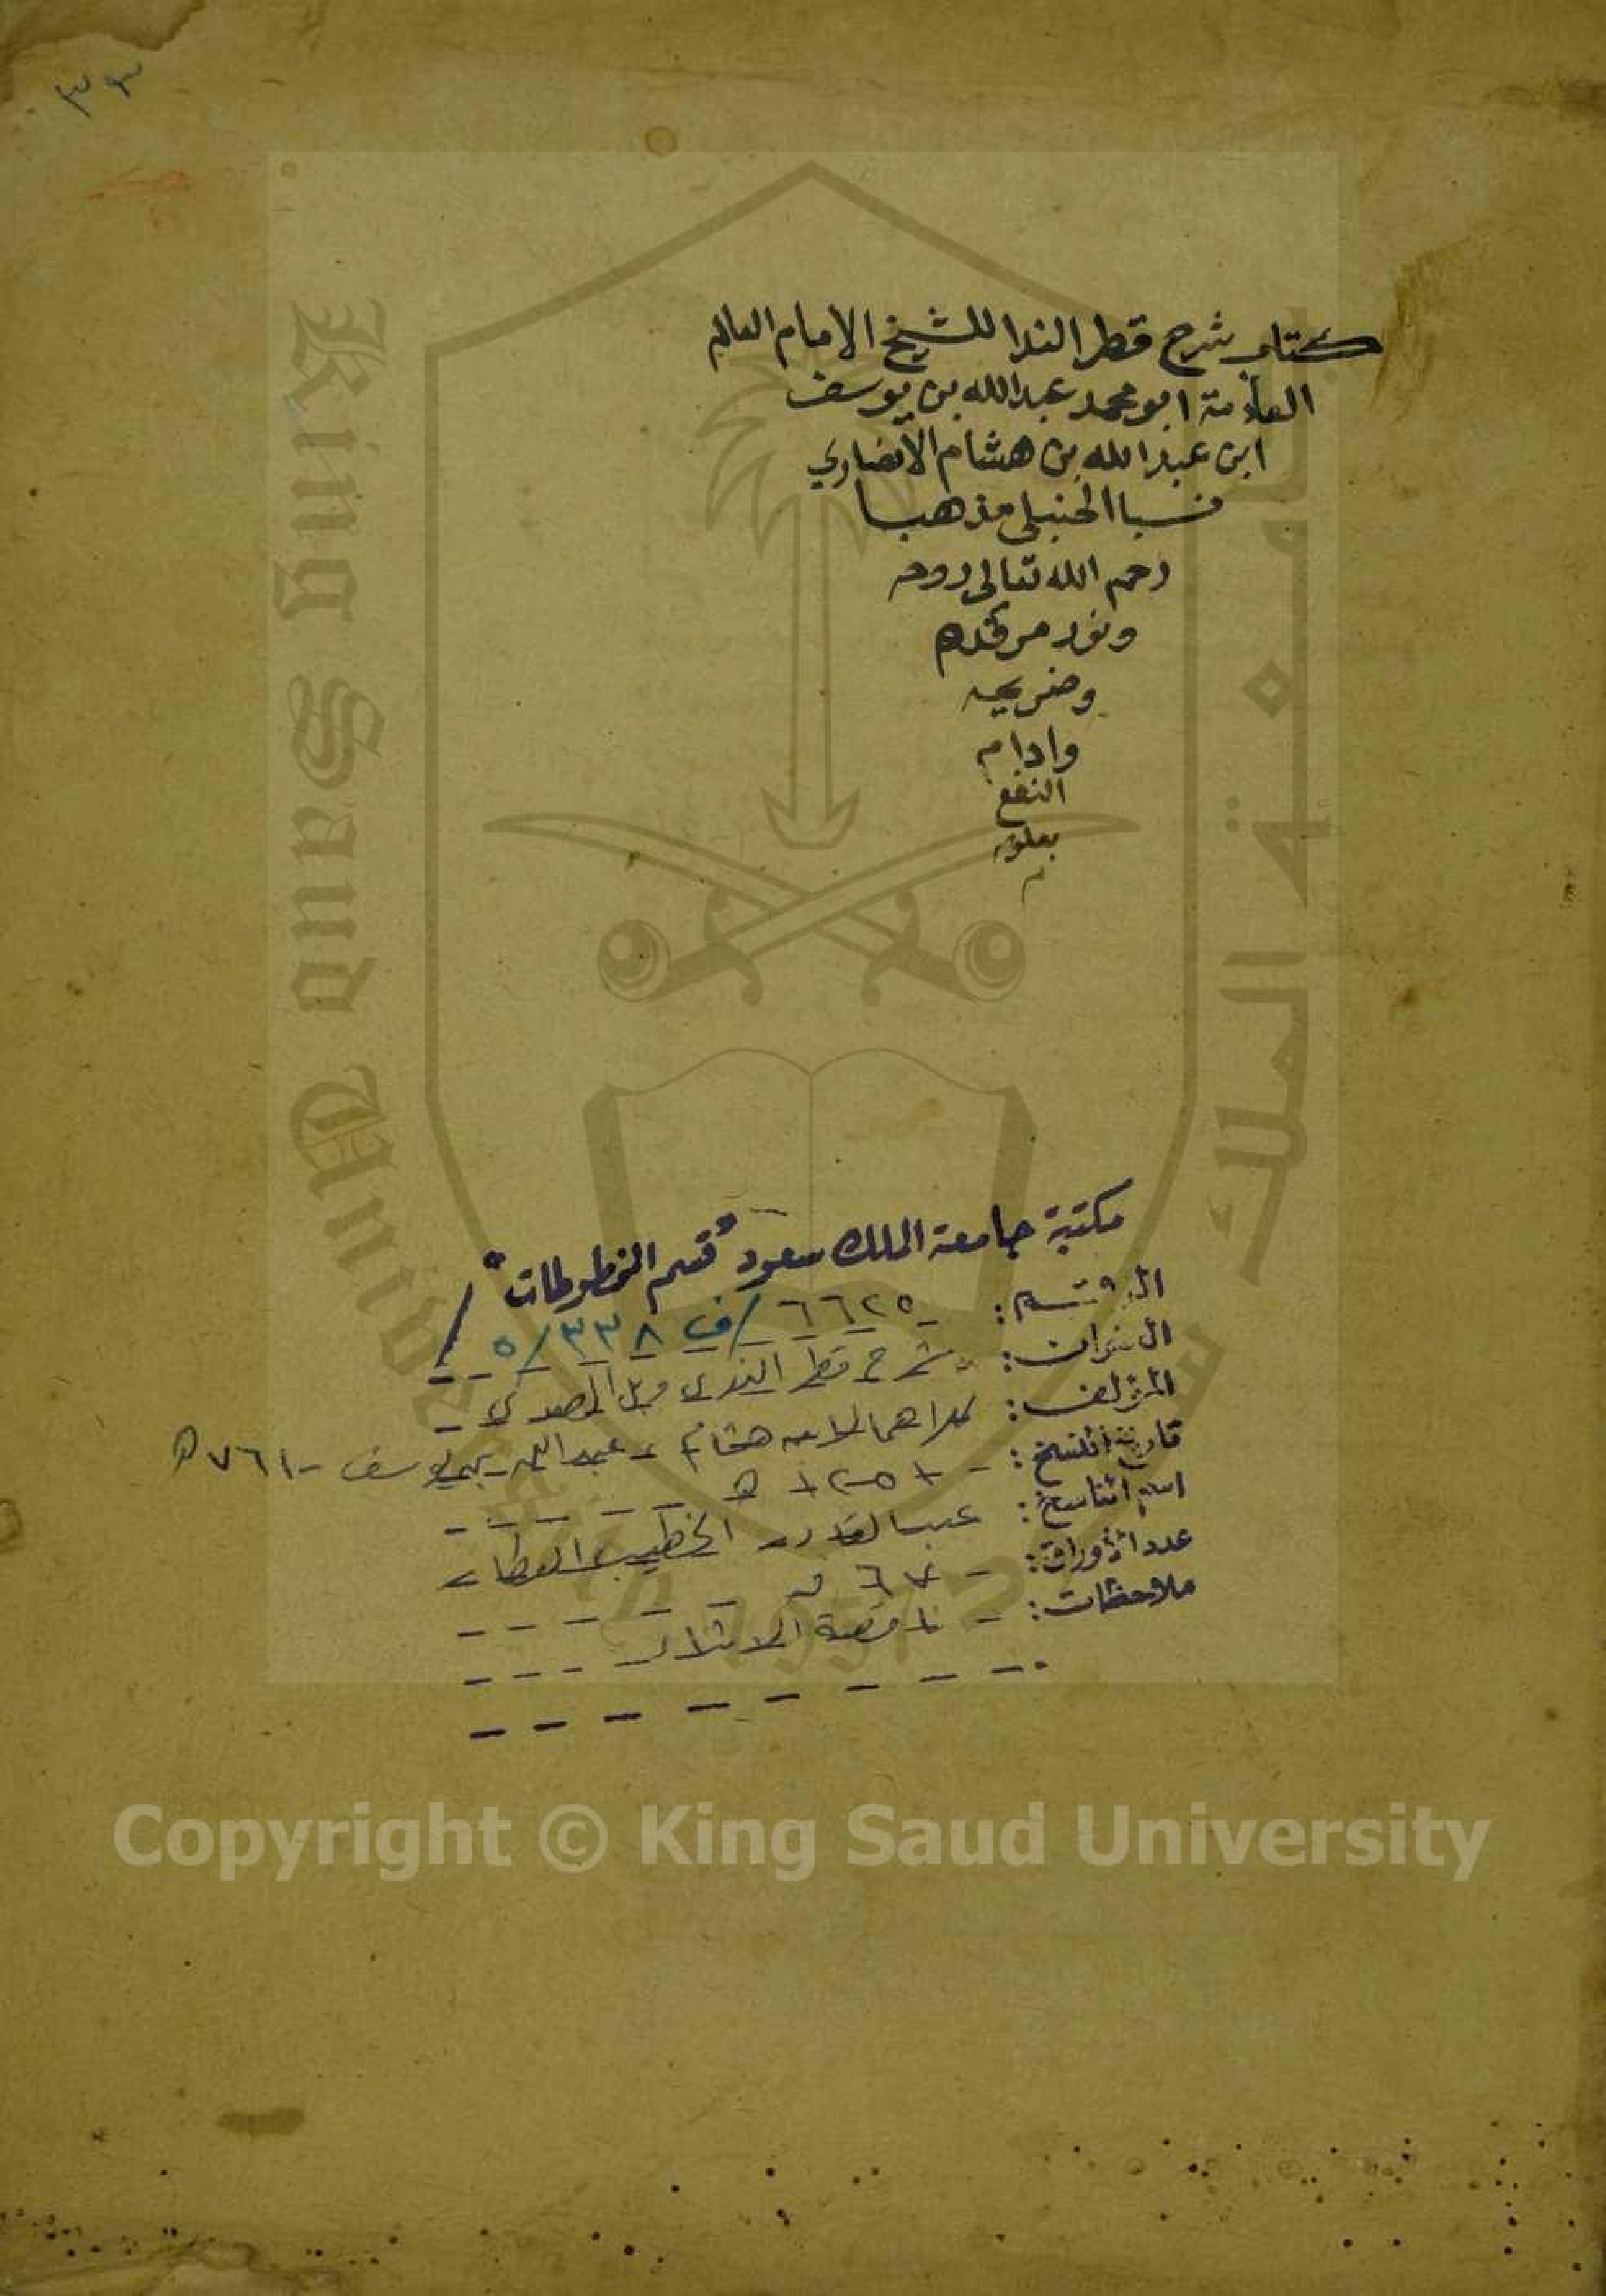 ٣٣
كتاب شرح قطر الندا للشيخ الامام العالم
العلامة ابو محمد عبدالله بن يوسف
ابن عبدالله بن هشام الأنصاري
نسبا الحنبلي مذهبا
رحم الله تعالى روحه
ونور مرقده
وضريحه
وادام
النفع
بعلومه
م
مكتبة جامعة الملك سعود "قسم المخطوطات"
الرقم: ٦٦٢٥ / ف ٣٣٨/٥
العنوان: شرح قطر الندى وبل الصدى
المؤلف: ابن هشام، عبد الله بن يوسف - ٧٦١ هـ
تاريخ النسخ: ١٢٥١ هـ
اسم الناسخ: عبد القادر الخطيب العطار
عدد الأوراق: ٦٧ ق
ملاحظات: ناقصة
King Saud University
جامعة الملك سعود
1957
Copyright © King Saud University